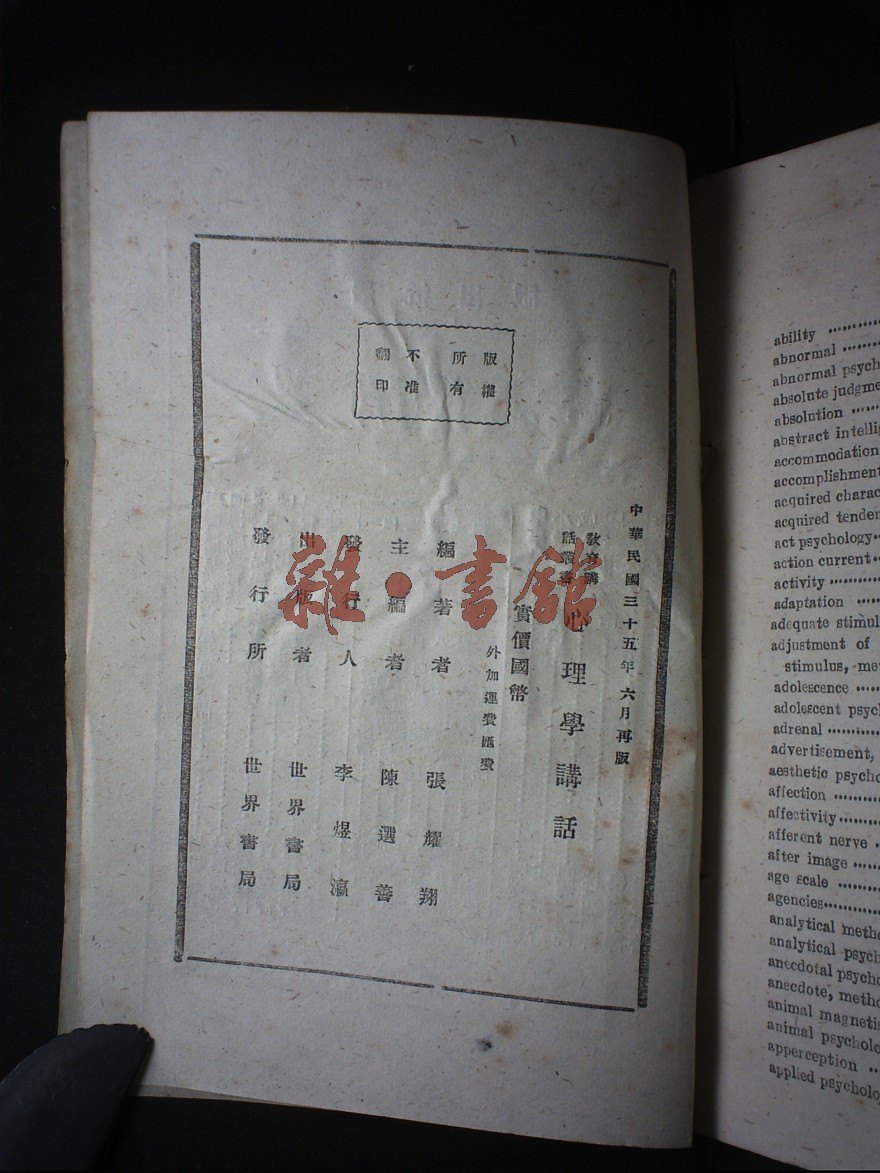 版權所有
不准翻印
中華民國三十五年六月再版
教育講話叢書
心理學講話
實價國幣
外加運費匯費
編著者 張耀翔
主編者 陳選善
發行人 李煜瀛
出版者 世界書局
發行所 世界書局
雜·書館
ability
abnormal
abnormal psych
absolute judgme
absolution
abstract intellig
accommodation
accomplishment
acquired charac
acquired tenden
act psychology
action current
activity
adaptation
adequate stimul
adjustment of
stimulus, me
adolescence
adolescent psyc
adrenal
advertisement,
aesthetic psycho
affection
affectivity
afferent nerve
after image
age scale
agencies
analytical metho
analytical psych
anecdotal psycho
anecdote, metho
animal magnetis
animal psycholo
apperception
applied psycholo